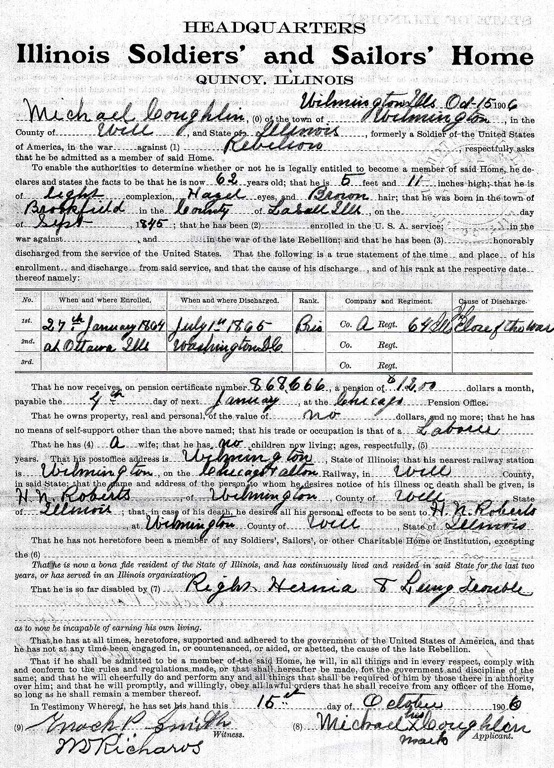 HEADQUARTERS
Illinois Soldiers' and Sailors' Home
QUINCY, ILLINOIS
Wilmington Ills Oct-15 1906
Michael Coughlin, (0) of the town of Wilmington, in the
County of Will and State of Illinois, formerly a Soldier of the United States
of America, in the war against (1) Rebelion, respectfully asks
that he be admitted as a member of said Home.
To enable the authorities to determine whether or not he is legally entitled to become a member of said Home, he de-
clares and states the facts to be that he is now 62 years old; that he is 5 feet and 11 inches high; that he is
of Light complexion, Hazel eyes, and Brown hair; that he was born in the town of
Brookfield in the County of Lasall Ills, on the day
of Sept 1845; that he has been (2) enrolled in the U. S. A. service; in the
war against, and in the war of the late Rebellion; and that he has been (3) honorably
discharged from the service of the United States. That the following is a true statement of the time and place of his
enrollment and discharge from said service, and that the cause of his discharge, and of his rank at the respective date
thereof namely:
No. When and where Enrolled. When and where Discharged. Rank. Company and Regiment. Cause of Discharge.
1st. 27th January 1864 July 1st 1865 Co. A Regt. 64 Ills Close of the War
2nd. at Ottawa Ills Washington D C Co. Regt.
3rd. Co. Regt.
That he now receives, on pension certificate number 868,666, a pension of $12.00 dollars a month,
payable the 4th day of next January, at the Chicago Pension Office.
That he owns property, real and personal, of the value of no dollars, and no more; that he has
no means of self-support other than the above named; that his trade or occupation is that of a Laborer
That he has (4) A wife; that he has no children now living; ages, respectfully, (5)
years. That his postoffice address is Wilmington, State of Illinois; that his nearest railway station
is Wilmington, on the Chicago & Alton Railway, in Will County,
in said State; that the name and address of the person to whom he desires notice of his illness or death shall be given, is
H. N. Roberts, of Wilmington, County of Will, State
of Illinois; that, in case of his death, he desires all his personal effects to be sent to H. N. Roberts
, at Wilmington County of Will, State of Illinois.
That he has not heretofore been a member of any Soldiers', Sailors', or other Charitable Home or Institution, excepting
the (6)
That he is now a bona fide resident of the State of Illinois, and has continuously lived and resided in said State for the last two
years, or has served in an Illinois organization.
That he is so far disabled by (7) Right Hernia & Lung Trouble
as to now be incapable of earning his own living.
That he has at all times, heretofore, supported and adhered to the government of the United States of America, and that
he has not at any time been engaged in, or countenanced, or aided, or abetted, the cause of the late Rebellion.
That if he shall be admitted to be a member of the said Home, he will, in all things and in every respect, comply with
and conform to the rules and regulations, made, or that shall hereafter be made, for the government and discipline of the
same; and that he will cheerfully do and perform any and all things that shall be required of him by those there in authority
over him; and that he will promptly, and willingly, obey all lawful orders that he shall receive from any officer of the Home,
so long as he shall remain a member thereof.
In Testimony Whereof, he has set his hand this 15th day of October 1906
(9) Enoch P. Smith Witness. (8) Michael his Coughlin
W D Richards mark Applicant.